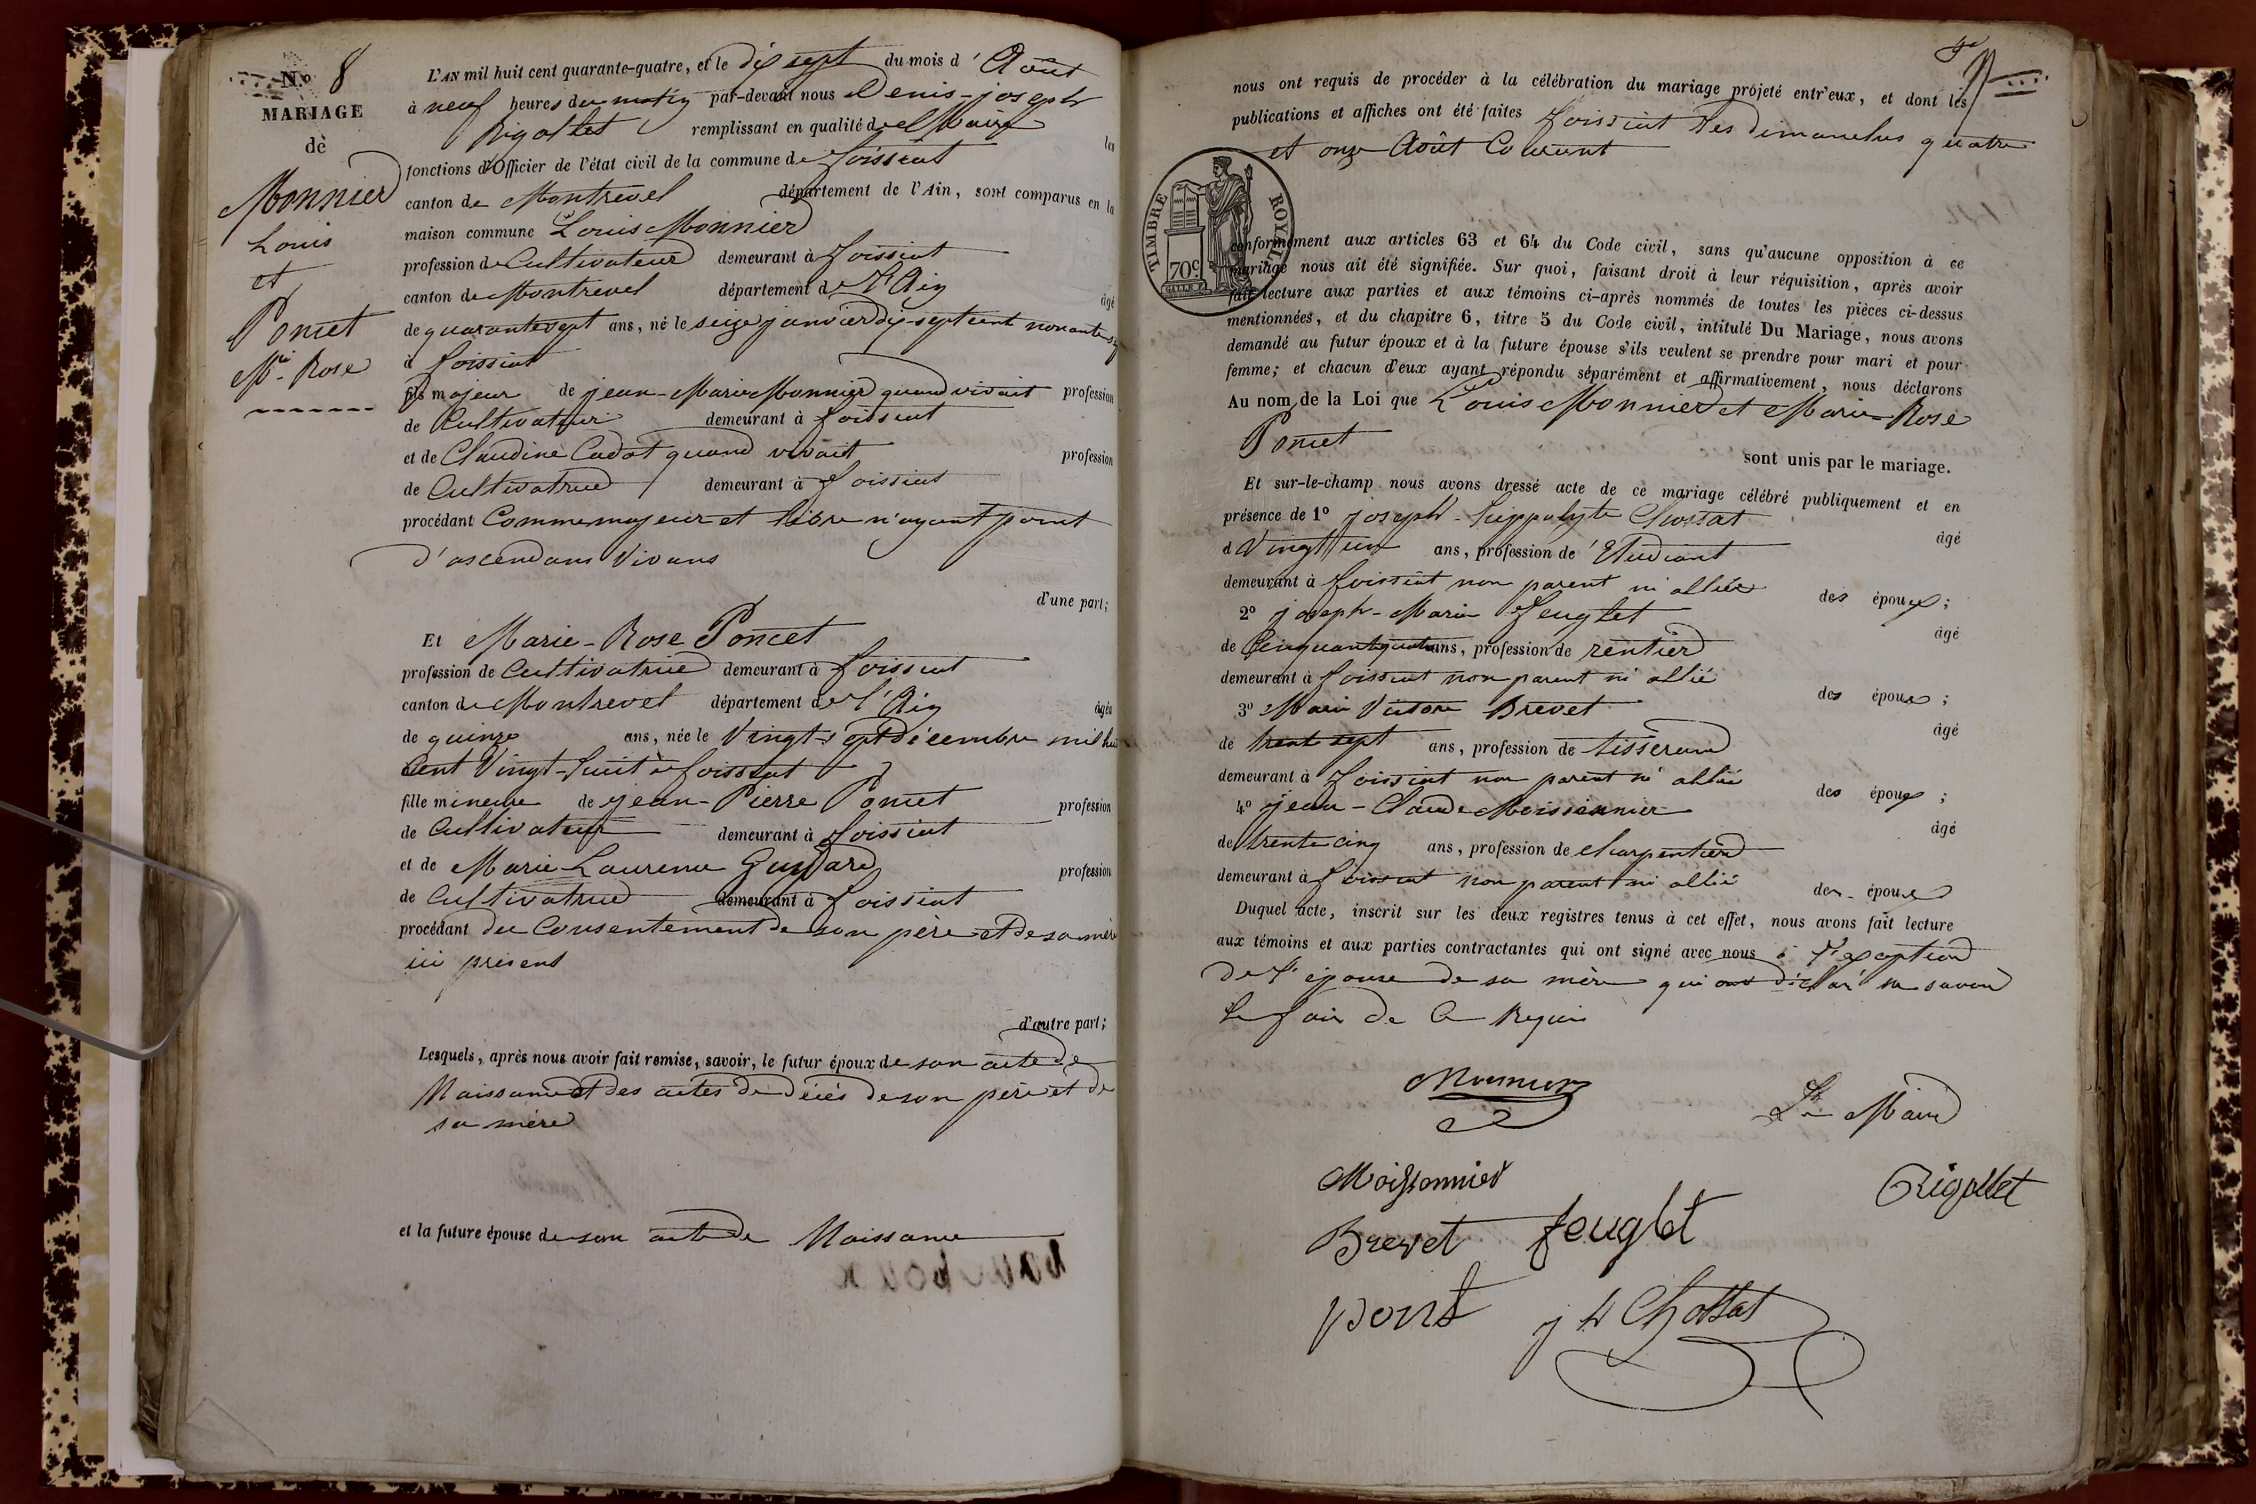 No 8
MARIAGE
de
Monnier
Louis
et
Poncet
Mie Rose
L'AN mil huit cent quarante-quatre, et le dix sept du mois d'Août
à neuf heures du matin par-devant nous Denis-joseph
Rigollet remplissant en qualité de Maire les
fonctions d'Officier de l'état civil de la commune de foissiat
canton de Montrevel département de l'Ain, sont comparus en la
maison commune Louis Monnier
profession de Cultivateur demeurant à foissiat
canton de Montrevel département de l'Ain âgé
de quarante sept ans, né le seize janvier dix-sept cent nonante sept
à foissiat
fils majeur de jean-Marie Monnier quand vivait profession
de Cultivateur demeurant à foissiat
et de Claudine Cadot quand vivait profession
de Cultivatrice demeurant à foissiat
procédant Comme majeur et libre n'ayant point
d'ascendans vivans
d'une part;
Et Marie-Rose Poncet
profession de Cultivatrice demeurant à foissiat
canton de Montrevel département de l'Ain âgée
de quinze ans, née le Vingt-sept décembre mil huit
cent Vingt-huit à foissiat
fille mineure de jean-Pierre Poncet profession
de Cultivateur demeurant à foissiat
et de Marie Laurence Guyard profession
de Cultivatrice demeurant à foissiat
procédant du Consentement de son père et de sa mère
ici présent
d'autre part;
Lesquels, après nous avoir fait remise, savoir, le futur époux de son acte de
Naissance et des actes de décès de son père et de
sa mère
et la future épouse de son acte de Naissance
nous ont requis de procéder à la célébration du mariage projeté entr'eux, et dont les
publications et affiches ont été faites foissiat les dimanches quatre
et onze Août Courant
TIMBRE ROYAL
70c
conformément aux articles 63 et 64 du Code civil, sans qu'aucune opposition à ce
mariage nous ait été signifiée. Sur quoi, faisant droit à leur réquisition, après avoir
fait lecture aux parties et aux témoins ci-après nommés de toutes les pièces ci-dessus
mentionnées, et du chapitre 6, titre 5 du Code civil, intitulé Du Mariage, nous avons
demandé au futur époux et à la future épouse s'ils veulent se prendre pour mari et pour
femme; et chacun d'eux ayant répondu séparément et affirmativement, nous déclarons
Au nom de la Loi que Louis Monnier et Marie-Rose
Poncet
sont unis par le mariage.
Et sur-le-champ nous avons dressé acte de ce mariage célébré publiquement et en
présence de 1º joseph-hippolyte Chossat âgé
d Vingt un ans, profession de Etudiant
demeurant à foissiat non parent ni allié des époux;
2º joseph-Marie feuglet âgé
de Cinquante quatre ans, profession de rentier
demeurant à foissiat non parent ni allié des époux;
3º Marie Victore Brevet âgé
de trent sept ans, profession de tisserand
demeurant à foissiat non parent ni allié des époux;
4º jean-Claude Moissonnier âgé
de trente cinq ans, profession de Charpentier
demeurant à foissiat non parent ni allié des époux
Duquel acte, inscrit sur les deux registres tenus à cet effet, nous avons fait lecture
aux témoins et aux parties contractantes qui ont signé avec nous à l'exception
de l'épouse de sa mère qui ont déclaré ne savoir
le fair de Ce Requis
Monnier
Le Maire
Moissonnier
Rigollet
Brevet feuglet
j h Chossat